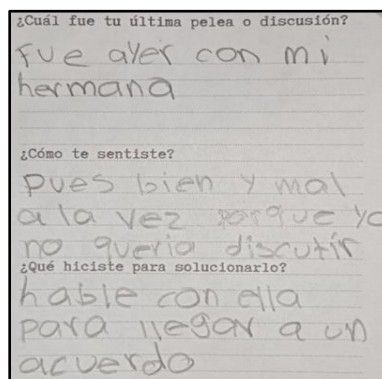 ¿Cuál fue tu última pelea o discusión?
Fue ayer con mi
hermana
¿Cómo te sentiste?
pues bien y mal
a la vez porque yo
no queria discutir
¿Qué hiciste para solucionarlo?
hable con ella
para llegar a un
acuerdo